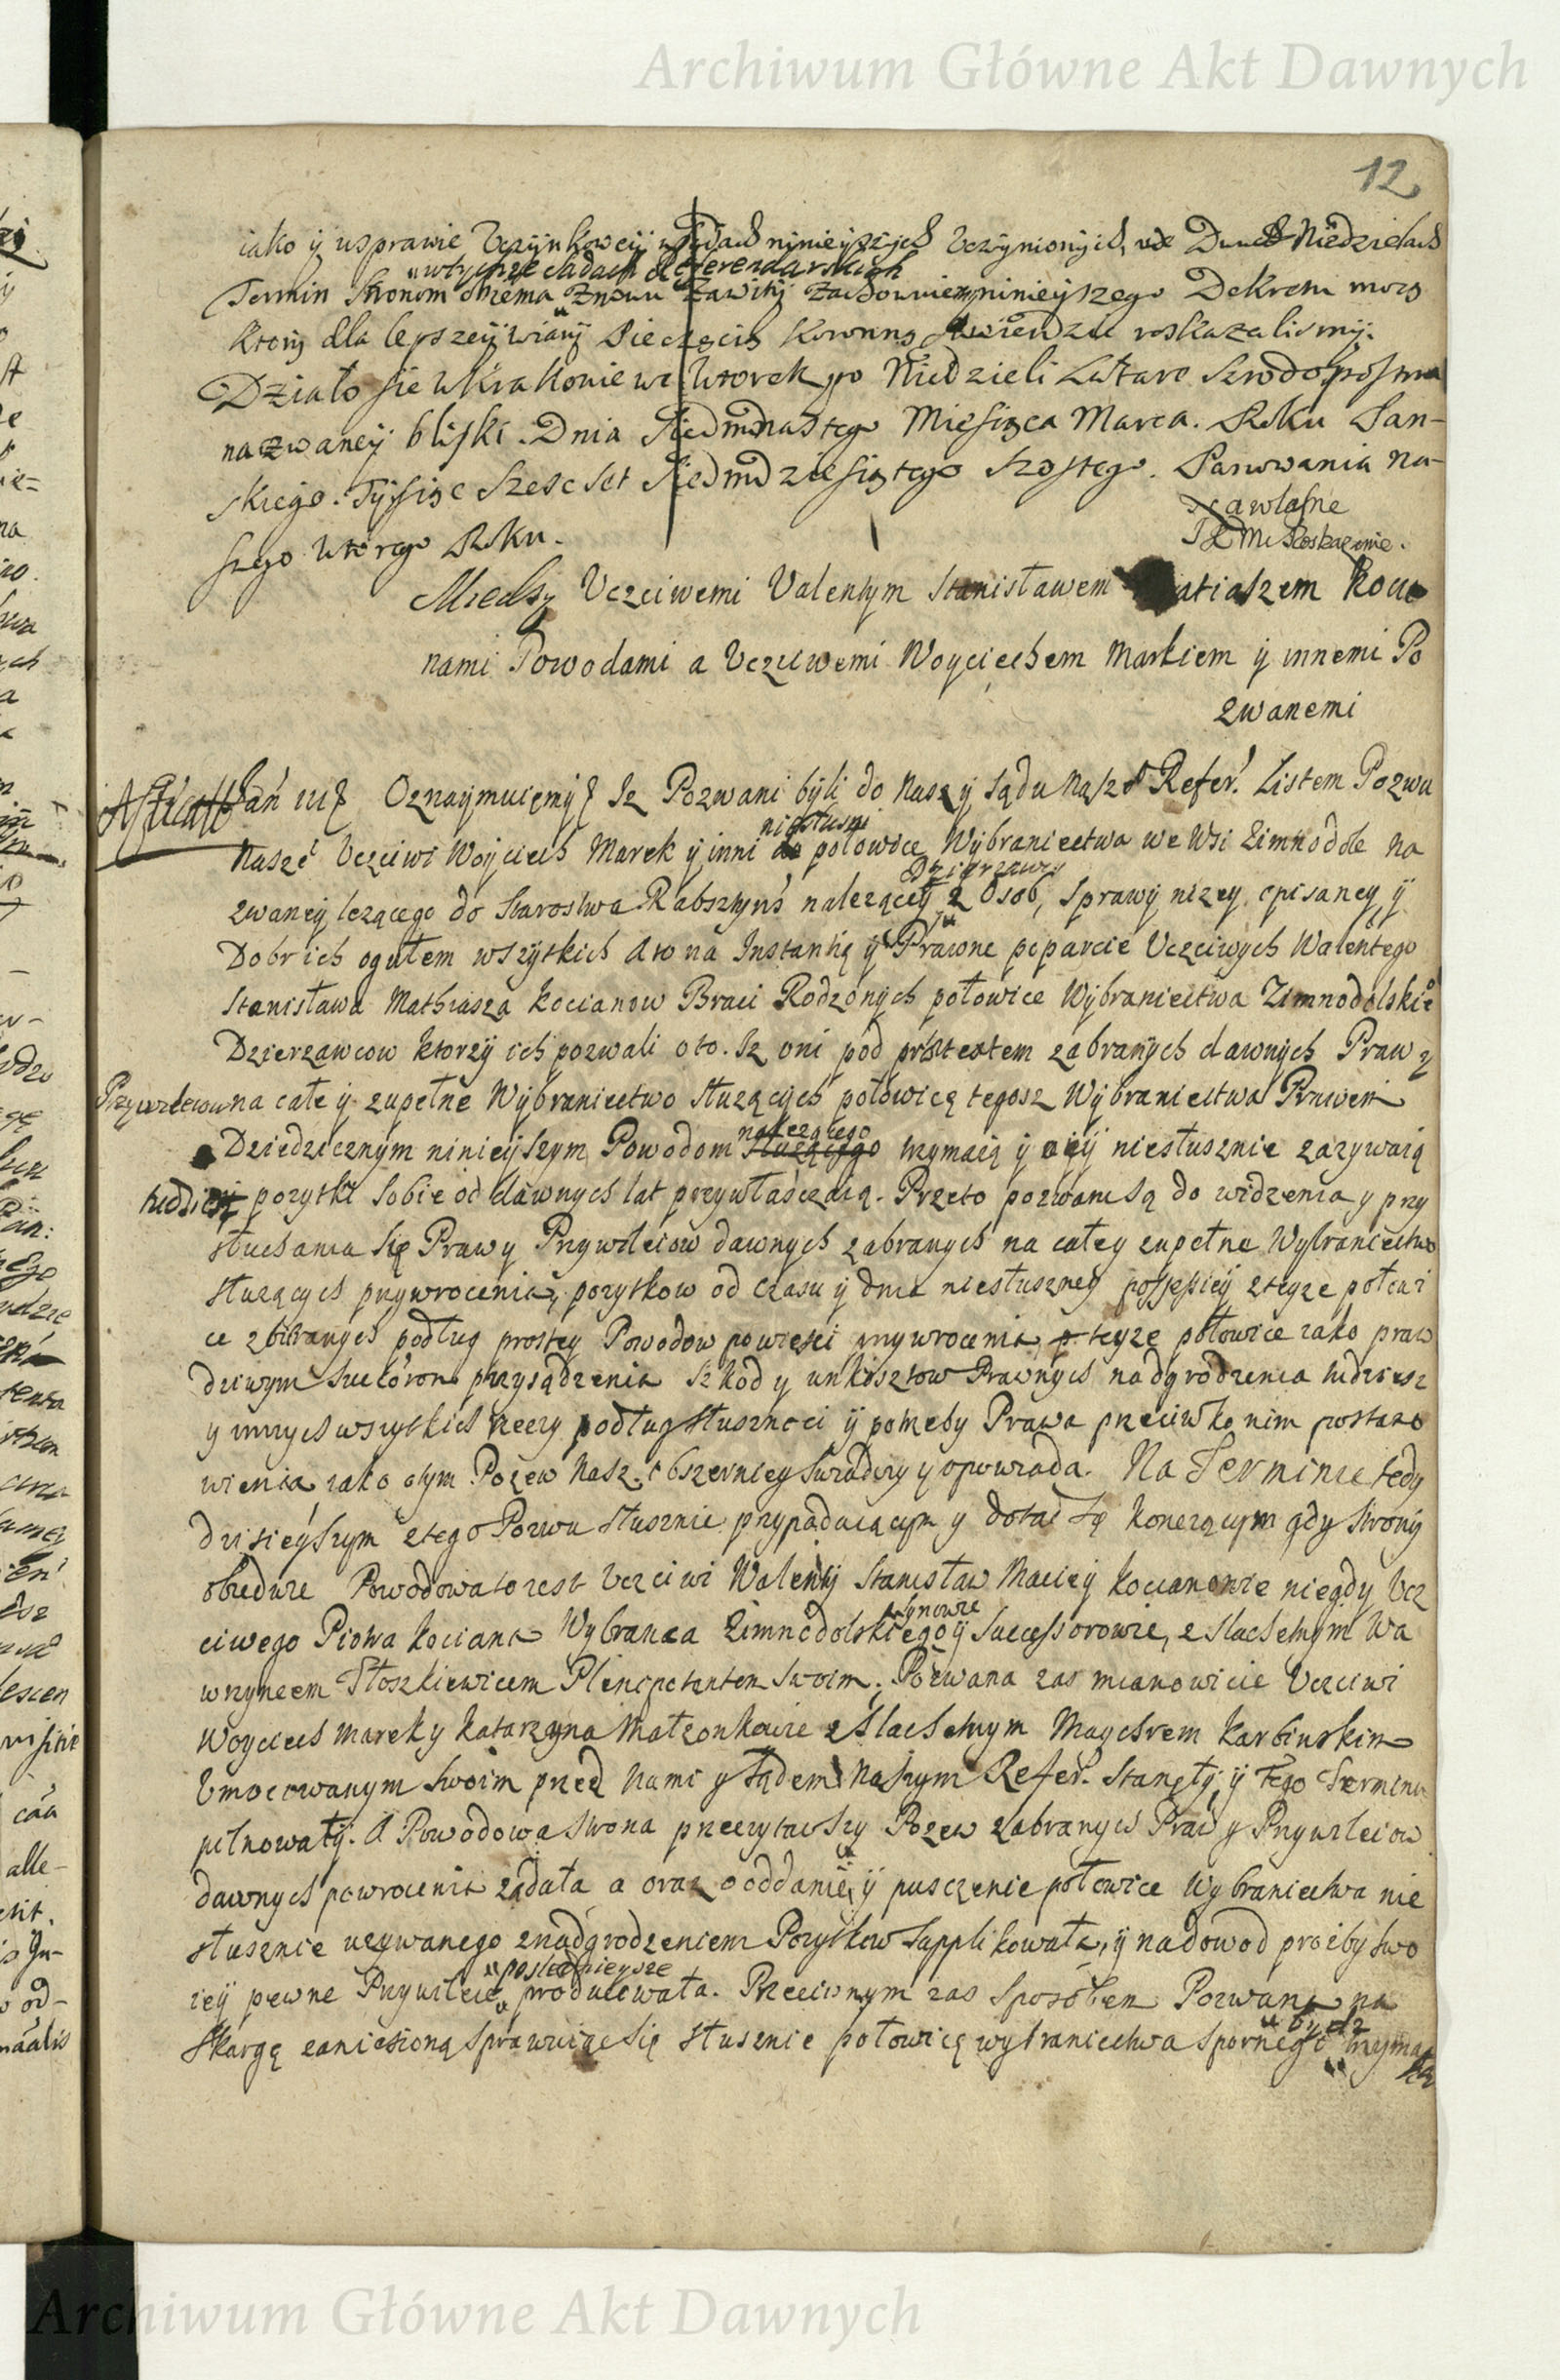 Archiwum Główne Akt Dawnych
12
iako y w sprawie Uczynkowey w Sądach ninieyszych Uczynionych, we Dwuch Niedzielach
w tychze Sądach Referendarskich
Termin Stronom obiema Znowu Zawity Zachowuiemy ninieyszego Dekretu mocą
Ktory dla lepszey wiary Pieczęcią Koronną stwierdzic roskazalismy.
Działo sie w Krakowie we Wtorek po Niedzieli Laetare Srodopostna
nazwaney bliski. Dnia Siedmnastego Miesiąca Marca. Roku Pan-
skiego. Tysiąc Szescset Siedmdziesiątego Szostego. Panowania na-
szego Wtorego Roku.
własne
JKMci Roskazanie.
Miedzy Uczciwemi Valentym Stanisławem atiaszem Kocia
nami Powodami a Uczciwemi Woyciechem Markiem y innemi Po
zwanemi
Jan III Oznaymuięmy Iz Pozwani byli do Naszy Sądu Nasze Refer. Listem Pozwu
niesłuszni
Nasze Uczciwi Woyciech Marek y inni połowice Wybraniectwa we Wsi Zimnodole na
Dzierzawcy
zwaney lezącego do Starostwa Rabsztyns należącey z Osob, Sprawy nizey opisaney y
Dobr ich ogułem wszytkich Ato na Instantią y Prawne poparcie Uczciwych Walentego
Stanisława Mathiasza Kocianow Braci Rodzonych połowice Wybraniectwa Zimnodolskie
Dzierzawcow ktorzy ich pozwali oto. Iz oni pod praetextem zabranych dawnych Praw y
Przywileiow na całe y zupełne Wybraniectwo słuzących połowicą tegosz Wybraniectwa Prawem
należącego
Dziedzicznym ninieyszym Powodom słuzącego trzymaią y oney niesłusznie zazywaią
tudziesz pozytki sobie od dawnych lat przywłaszczaią. Przeto pozwani są do widzenia y przy
słuchania Się Praw y Przywileiow dawnych zabranych na całey zupełne Wybraniectwo
słuzących przywrocenia, pozytkow od czasu y dnia niesłuszney possessiey z teyze połowi
ce zbieranych podług prostey Powodow powiesci przywrocenia teyze połowice iako praw
dziwym Succesorom przysądzenia Szkod y unkosztow Prawnych nadgrodzenia tudziesz
y innych wszytkich rzeczy podług słusznosci y potrzeby Prawa przeciwko nim postano
wienia iako otym Pozew Nasz obszerniey swiadczy y opowiada. Na Terminie tedy
dzisieyszym z tego Pozwu słusznie przypadaiącym y dotad się konczącym gdy strony
obiedwie Powodowa to iest Uczciwi Walenty Stanisław Maciey Kocianowie niegdy Ucz
synowie
ciwego Piotra Kociana Wybranca Zimnodolskiego y Successorowie, z Slachetnym Wa
wrzyncem Płoszkiewicem Plenipotentem swoim. Pozwana zas mianowicie Uczciwi
Woyciech Marek y Katarzyna Małzonkowie z Slachetnym Maychrem Karbinskim
Umocowanym swoim przed Nami y Sądem Naszym Refer. Stanęły, y Tego Terminu
pilnowały. A Powodowa strona przeczytawszy Pozew zabranych Praw y Przywileiow
dawnych powrocenia ządała a oraz o oddanie, y pusczenie połowice Wybraniectwa nie
słusznie uzywanego z nadgrodzeniem Pozytkow Supplikowała, y na dowod prozby swo
poslednieysze
iey pewne Przywileie produkowała. Przeciwnym zas Sposobem Pozwana na
bydz
Skargę zaniesioną sprawuiąc się słusznie połowicę wybraniectwa spornego trzyma
Archiwum Główne Akt Dawnych